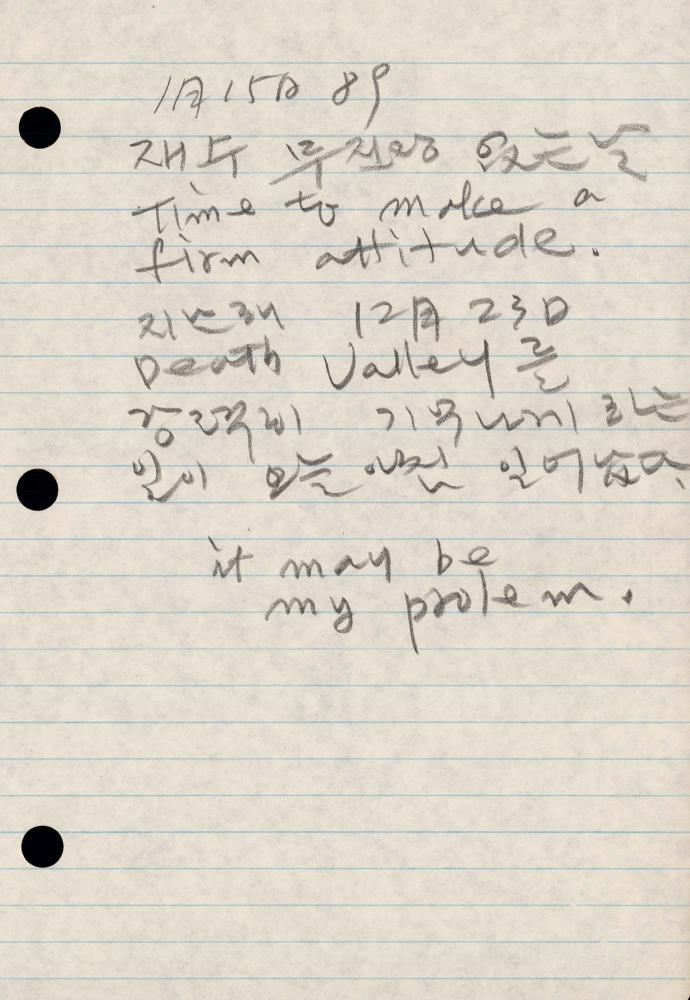 1月 15日 89
재수 무진장 없는 날
Time to make a
firm attitude.
지난해 12月 23日
Death Valley 를
강력히 기억나게 하는
일이 오늘 아침 일어났다.
it may be
my prolem.